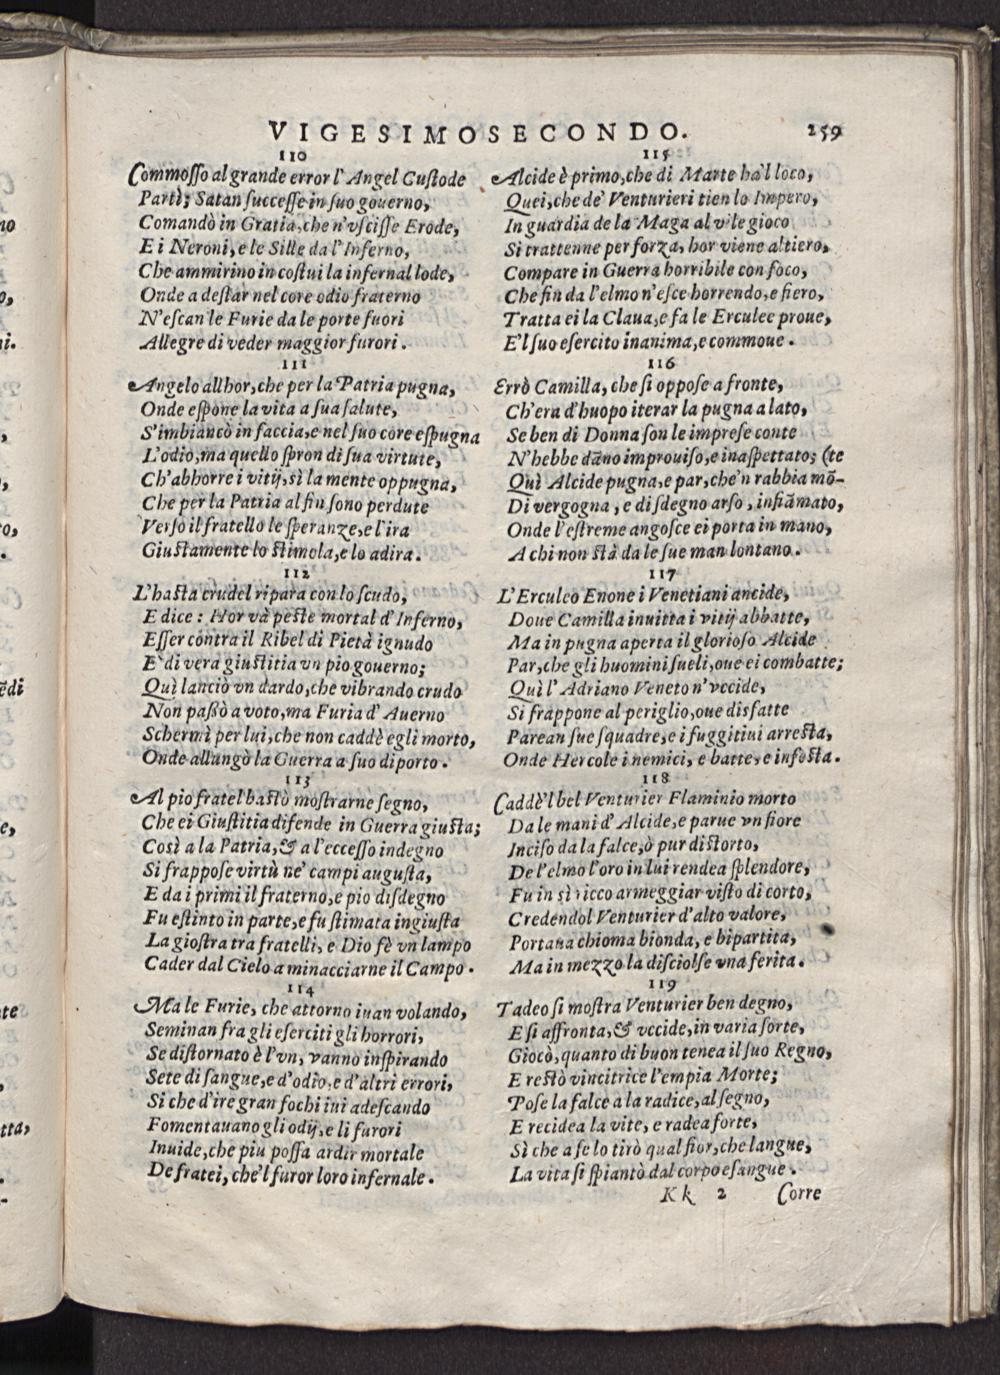 VIGESIMOSECONDO. 259
110
Commosso al grande error l'Angel Custode
Partì; Satan successe in suo gouerno,
Comandò in Gratia, che n'vscisse Erode,
E i Neroni, e le Sille da l'Inferno,
Che ammirino in costui la infernal lode,
Onde a destar nel core odio fraterno
N'escan le Furie da le porte fuori
Allegre di veder maggior furori.
111
Angelo allhor, che per la Patria pugna,
Onde espone la vita a sua salute,
S'imbiancò in faccia, e nel suo core espugna
L'odio, ma quello spron di sua virtute,
Ch'abhorre i vitij, sì la mente oppugna,
Che per la Patria al fin sono perdute
Verso il fratello le speranze, e l'ira
Giustamente lo stimola, e lo adira.
112
L'hasta crudel ripara con lo scudo,
E dice: Hor và peste mortal d'Inferno,
Esser contra il Ribel di Pietà ignudo
E' di vera giustitia vn pio gouerno;
Quì lanciò vn dardo, che vibrando crudo
Non passò a voto, ma Furia d'Auerno
Schermì per lui, che non caddè egli morto,
Onde allungò la Guerra a suo diporto.
113
Al pio fratel bastò mostrarne segno,
Che ei Giustitia difende in Guerra giusta;
Così a la Patria, & a l'eccesso indegno
Si frappose virtù ne' campi augusta,
E da i primi il fraterno, e pio disdegno
Fu estinto in parte, e fu stimata ingiusta
La giostra tra fratelli, e Dio fè vn lampo
Cader dal Cielo a minacciarne il Campo.
114
Ma le Furie, che attorno iuan volando,
Seminan fra gli eserciti gli horrori,
Se distornato è l'vn, vanno inspirando
Sete di sangue, e d'odio, e d'altri errori,
Si che d'ire gran fochi iui adescando
Fomentauano gli odij, e li furori
Inuide, che più possa ardir mortale
De fratei, che'l furor loro infernale.
115
Alcide è primo, che di Marte hà'l loco,
Quei, che de' Venturieri tien lo Impero,
In guardia de la Maga al vile gioco
Si trattenne per forza, hor viene altiero,
Compare in Guerra horribile con foco,
Che fin da l'elmo n'esce horrendo, e fiero,
Tratta ei la Claua, e fa le Erculee proue,
E'l suo esercito inanima, e commoue.
116
Errò Camilla, che si oppose a fronte,
Ch'era d'huopo iterar la pugna a lato,
Se ben di Donna son le imprese conte
N'hebbe dãno improuiso, e inaspettato; (te
Quì Alcide pugna, e par, che'n rabbia mõ-
Di vergogna, e di sdegno arso, infiãmato,
Onde l'estreme angosce ei porta in mano,
A chi non stà da le sue man lontano.
117
L'Erculeo Enone i Venetiani ancide,
Doue Camilla inuitta i vitij abbatte,
Ma in pugna aperta il glorioso Alcide
Par, che gli huomini sueli, oue ei combatte;
Quì l'Adriano Veneto n'vccide,
Si frappone al periglio, oue disfatte
Parean sue squadre, e i fuggitiui arresta,
Onde Hercole i nemici, e batte, e infesta.
118
Caddè'l bel Venturier Flaminio morto
Da le mani d'Alcide, e parue vn fiore
Inciso da la falce, ò pur distorto,
De l'elmo l'oro in lui rendea splendore,
Fu in sì ricco armeggiar visto di corto,
Credendol Venturier d'alto valore,
Portaua chioma bionda, e bipartita,
Ma in mezzo la disciolse vna ferita.
119
Tadeo si mostra Venturier ben degno,
E si affronta, & vccide, in varia sorte,
Giocò, quanto di buon tenea il suo Regno,
E restò vincitrice l'empia Morte;
Pose la falce a la radice, al segno,
E recidea la vite, e radea forte,
Sì che a se lo tirò qual fior, che langue,
La vita si spiantò dal corpo esangue.
Kk 2 Corre